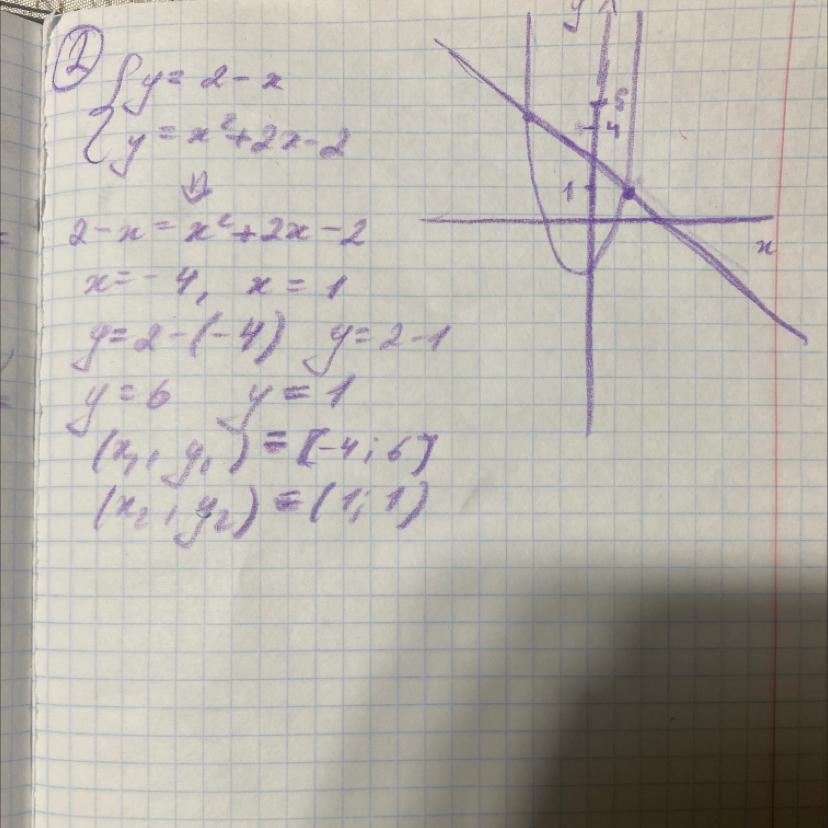 2
{ y = 2 - x
y = x² + 2x - 2
⇓
2 - x = x² + 2x - 2
x = -4, x = 1
y = 2 - (-4) y = 2 - 1
y = 6 y = 1
(x₁, y₁) = [-4; 6]
(x₂, y₂) = (1; 1)
y
4
1
x